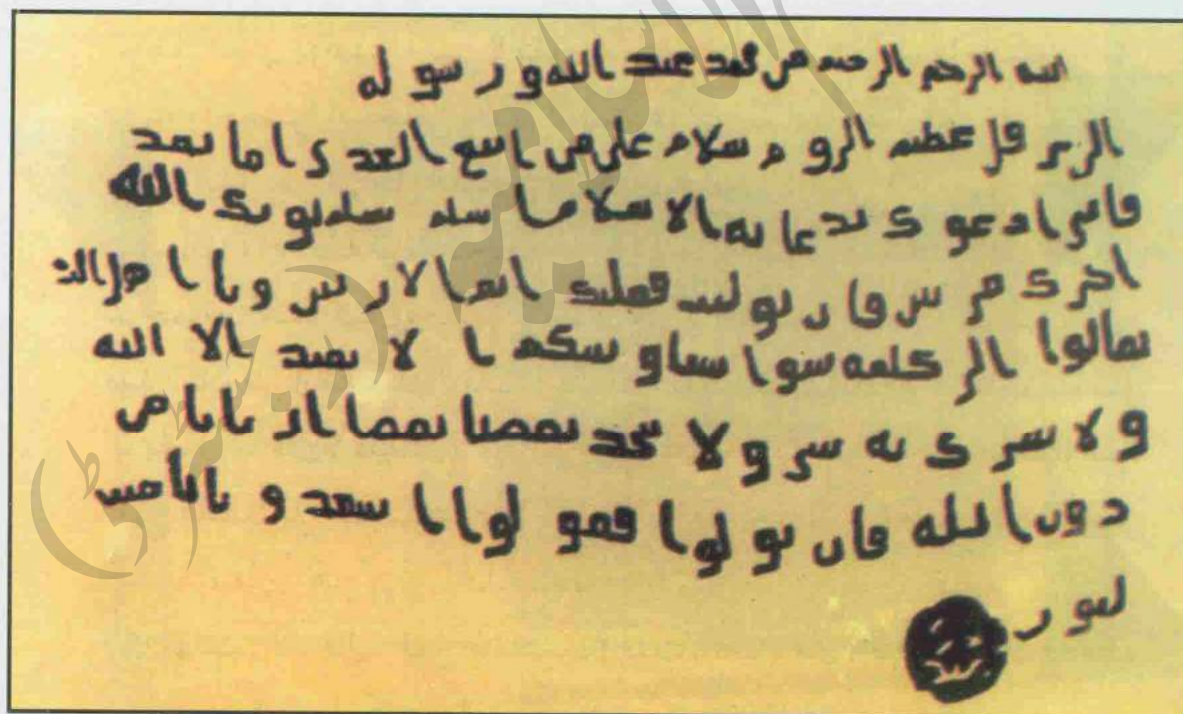 الله الرحمن الرحيم من محمد عبد الله ورسوله
الى هرقل عظيم الروم سلام على من اتبع الهدى اما بعد
فاني ادعوك بدعاية الاسلام اسلم تسلم يوتك الله
اجرك مرتين فان توليت فعليك اثم الاريسين ويا اهل الكت
تعالوا الى كلمة سوا بيننا وبينكم ا لا نعبد الا الله
ولا نشرك به شي ولا يتخذ بعضنا بعضا اربابا من
دون الله فان تولوا فقولوا اشهدو بانا مس
لمون